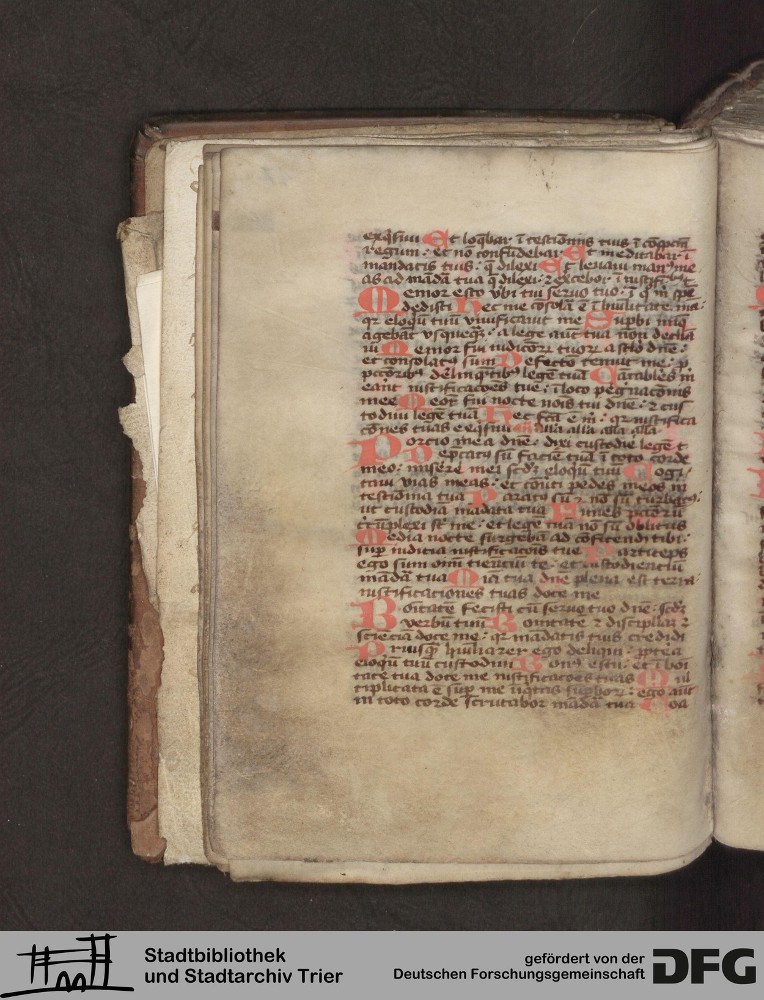 exq̃siui Et loq̃bar ĩ testiõnijs tuis ĩ cõspctũ
regum : et nõ confũdebar Et meditabar ĩ
mandatis tuis : q̃ dilexi Et leuaui man9 me
as ad mãdã tua q̃ dilexi : ⁊ exc̃ebor ĩ iustif
Memor esto ṽbi tui seruo tuo : ĩ q̃ m̃ spẽ
dedisti Hec me cõsolã ẽ ĩ hũilitate ma :
qr eloqũ tuũ viuificauit me Supbi iniq̃
agebãt vsqueq̃ : a lege aũt tua non declia
ui Memor fui iudicioꝝ tuoꝝ a sclo dñe :
et consolat9 sum Defecto tenuit me : p̃
pctõrib9 derelinq̃tib9 legẽ tuã Cãtabiles m
erãnt iustificacões tue : ĩ loco pegnacõnis
mee Meõr fui nocte nõis tui dñe : ⁊ cus
todiui legẽ tuã Hec fcã ẽ m̃ : qr iustifica
cões tuas exq̃siui alla alla alla
Portio mea dñe : dixi custodire legẽ t
Depcatus sũ faciẽ tuã ĩ toto corde
meo : miserẽ mei scd3 eloqũ tuũ Cogi
taui vias meas : et cõuti pedes meos in
testiõnia tua Parat9 sũ ⁊ nõ sũ turbat9 :
ut custodiã mãdata tua Funes pctõrũ
circũplexi st̃ me : et legẽ tuã nõ sũ oblitus
Media nocte surgebã ad cõfitendũ tibi :
sup iudicia iustificacõis tue Particeps
ego sum oĩm timentiũ te : et custodientiũ
mãdã tua Mia tua dñe plena est terra
iustificationes tuas doce me
Boitatẽ fecisti cũ seruo tuo dñe : scd3
verbũ tuũ Bonitatẽ ⁊ disciplinã ⁊
sciẽciã doce me : qr mãdatis tuis credidi
Priusq̃ hũiliarer ego deliqui : ppterea
eloqũ tuũ custodiui Bon9 es tu : et ĩ boi
tate tua doce me iustificacões tuas Mul
tiplicata ẽ sup me iiq̃tas supborꝝ : ego aũt
in toto corde scrutabor mãdã tua Coa
Stadtbibliothek
und Stadtarchiv Trier
gefördert von der
Deutschen Forschungsgemeinschaft
DFG